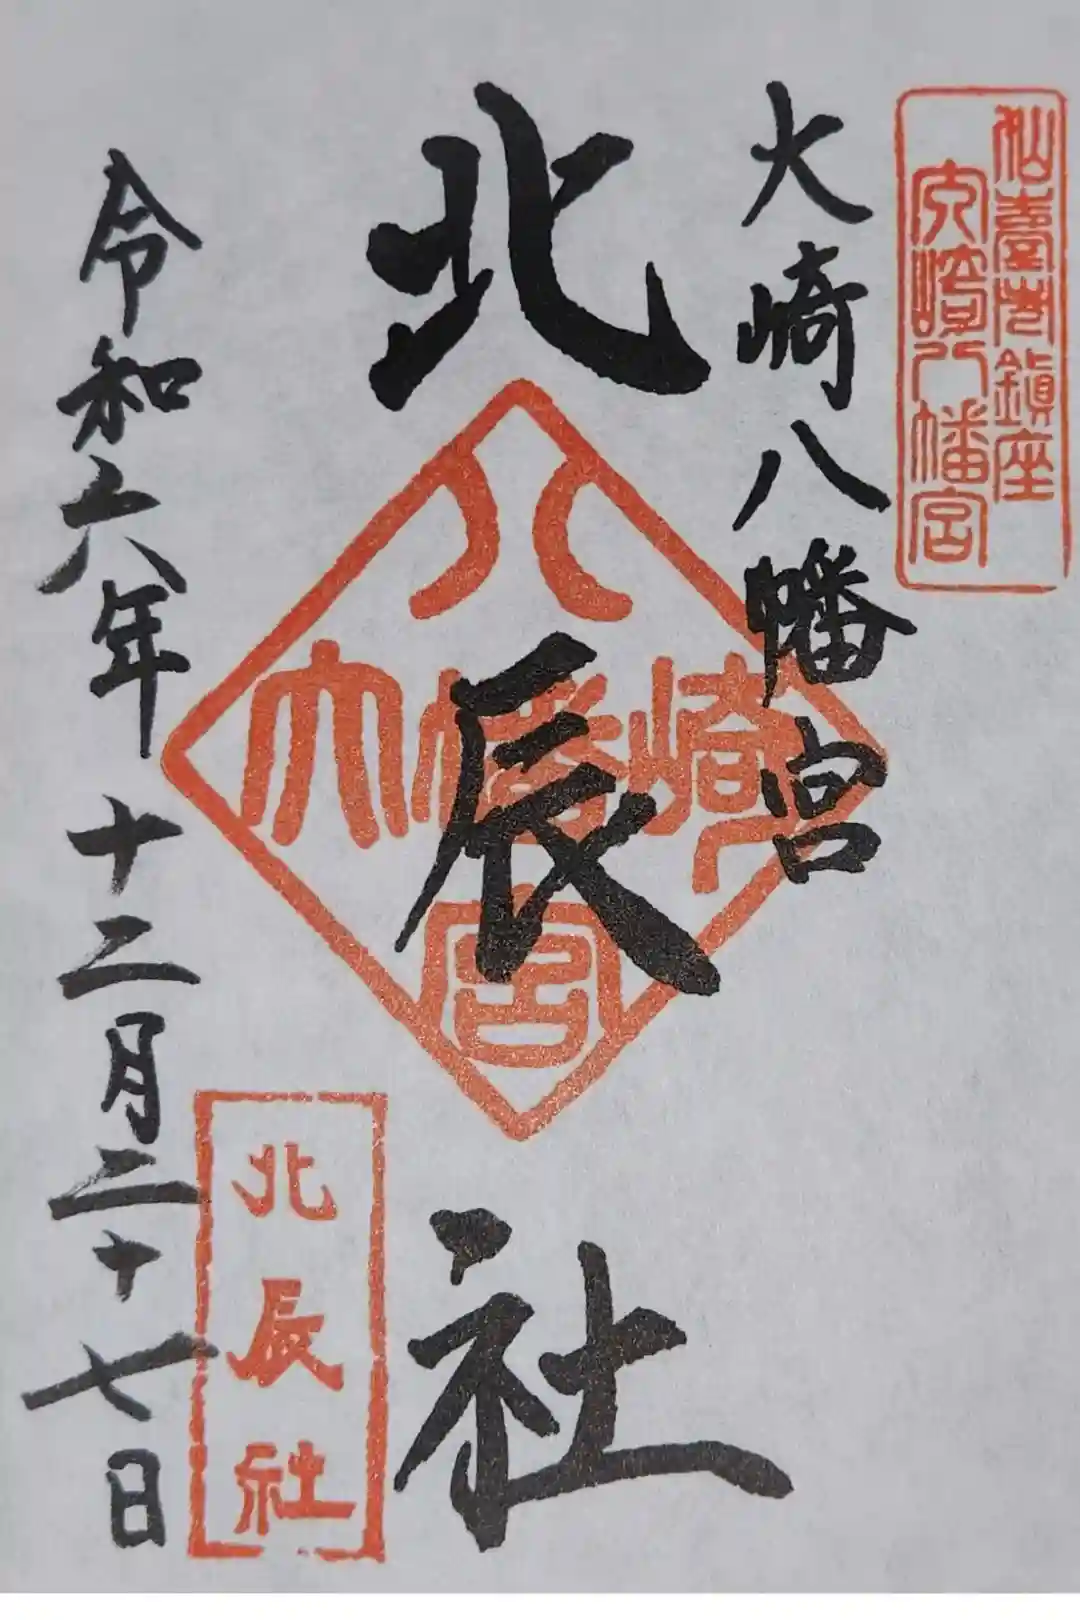 仙臺市鎮座
大崎八幡宮
大崎八幡宮
北辰社
大崎八幡宮
北辰社
令和六年 十二月二十七日